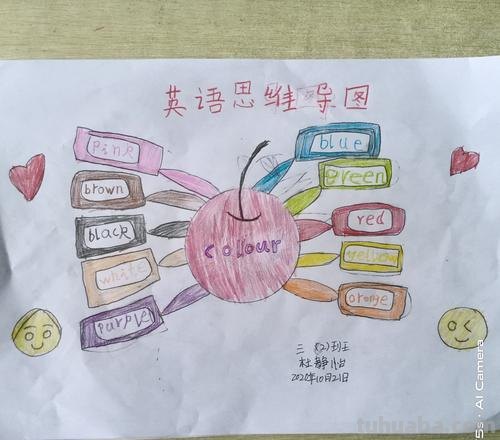 英语思维导图
pink
brown
black
white
purple
colour
blue
green
red
yellow
orange
三(2)班
杜静怡
2020年10月21日
5s·AI Camera
tuhuaba.com